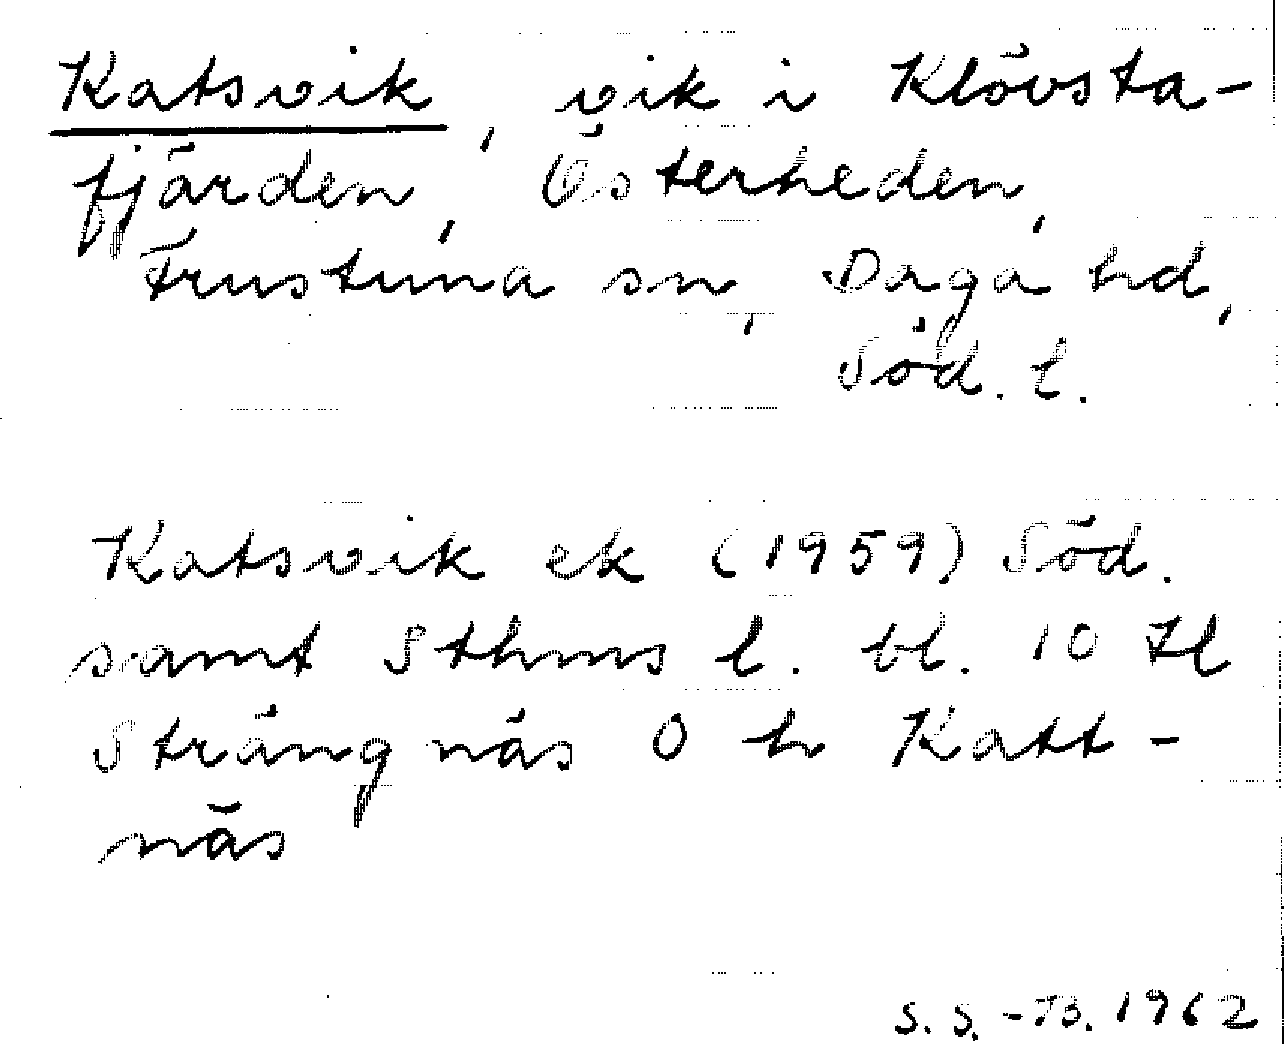 Katsvik, vik i Klövsta-
fjärden, Österheden,
Frustuna sn, Daga hd,
Söd. l.
Katsvik ek (1959) Söd.
samt Sthms l. bl. 10 Il
Strängnäs O h Katt-
näs
S. S. -B. 1962